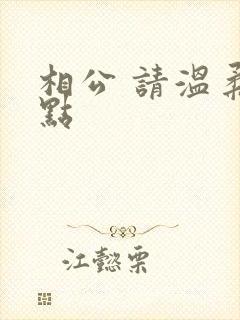 相公 請溫柔
點
江懿栗